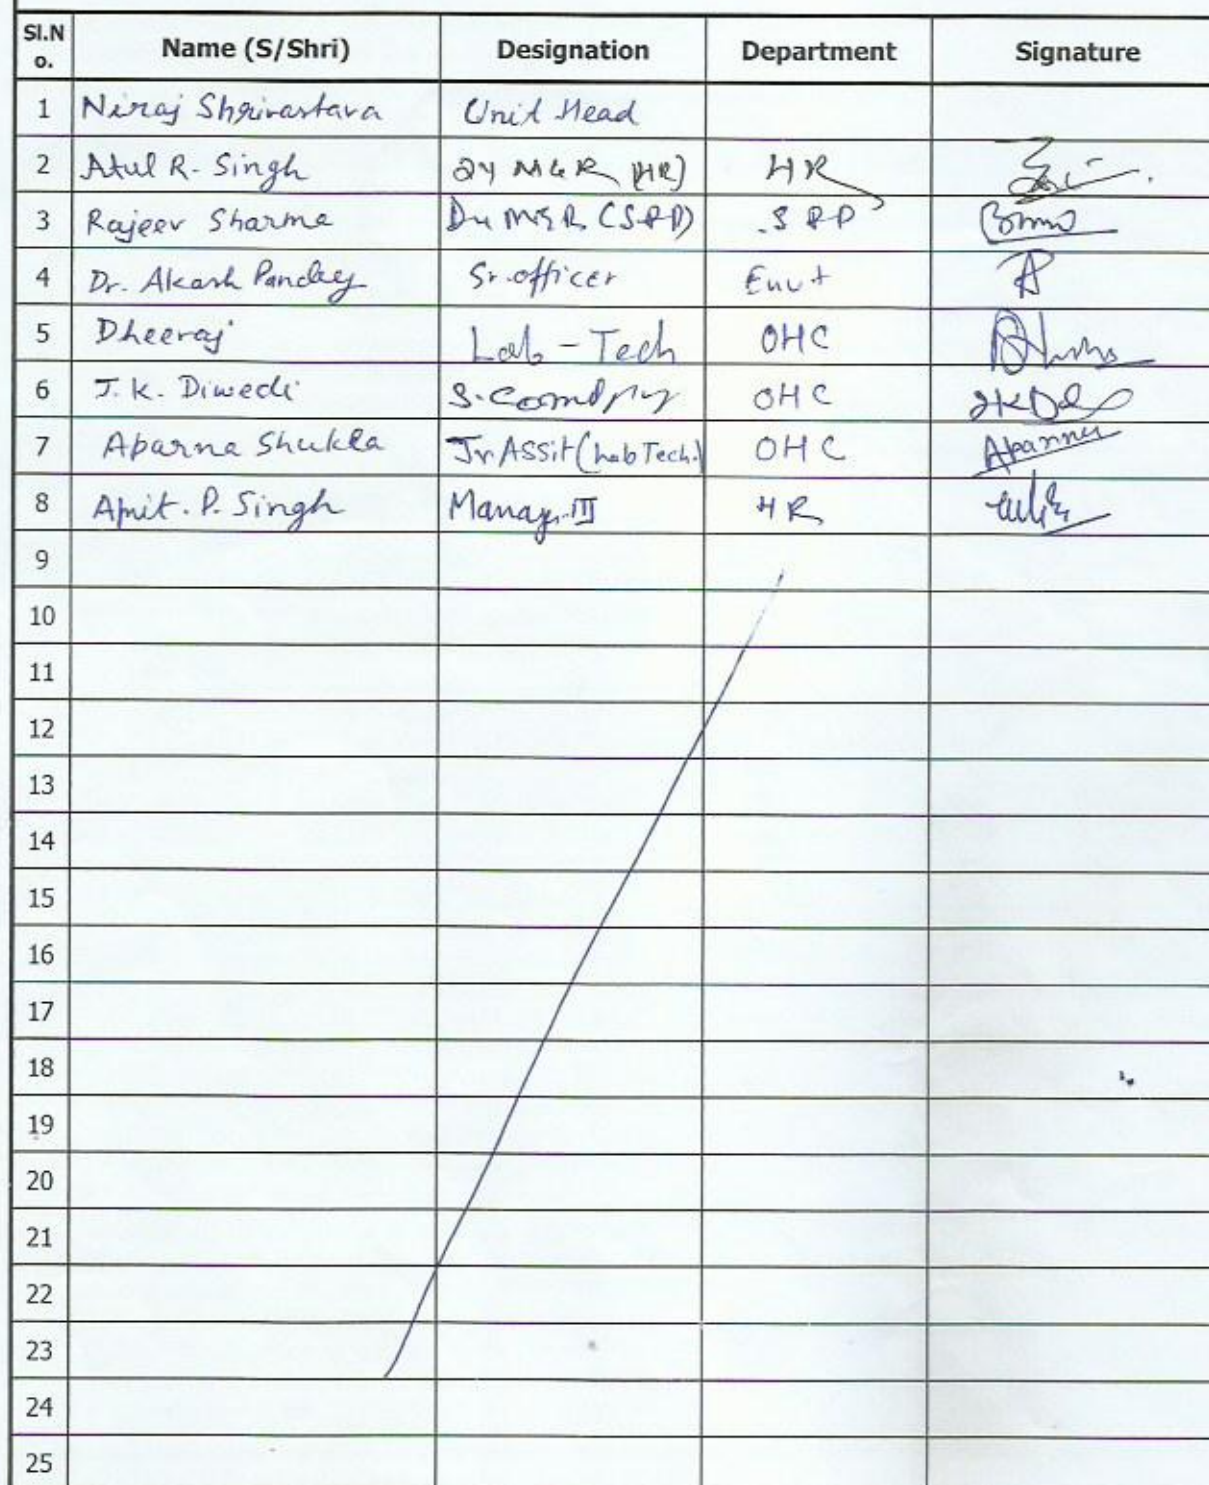 Sl.N
o. Name (S/Shri) Designation Department Signature
1 Niraj Shrivastava Unit Head
2 Atul R. Singh MGR (HR) HR
3 Rajeev Sharma MGR (SPP) SPP
4 Dr. Akash Pandey Sr. officer Envt
5 Dheeraj Lab-Tech OHC
6 J. K. Diwedi OHC
7 Aparna Shukla Jr Assit (Lab Tech.) OHC Aparna
8 Amit. P. Singh HR
9
10
11
12
13
14
15
16
17
18
19
20
21
22
23
24
25